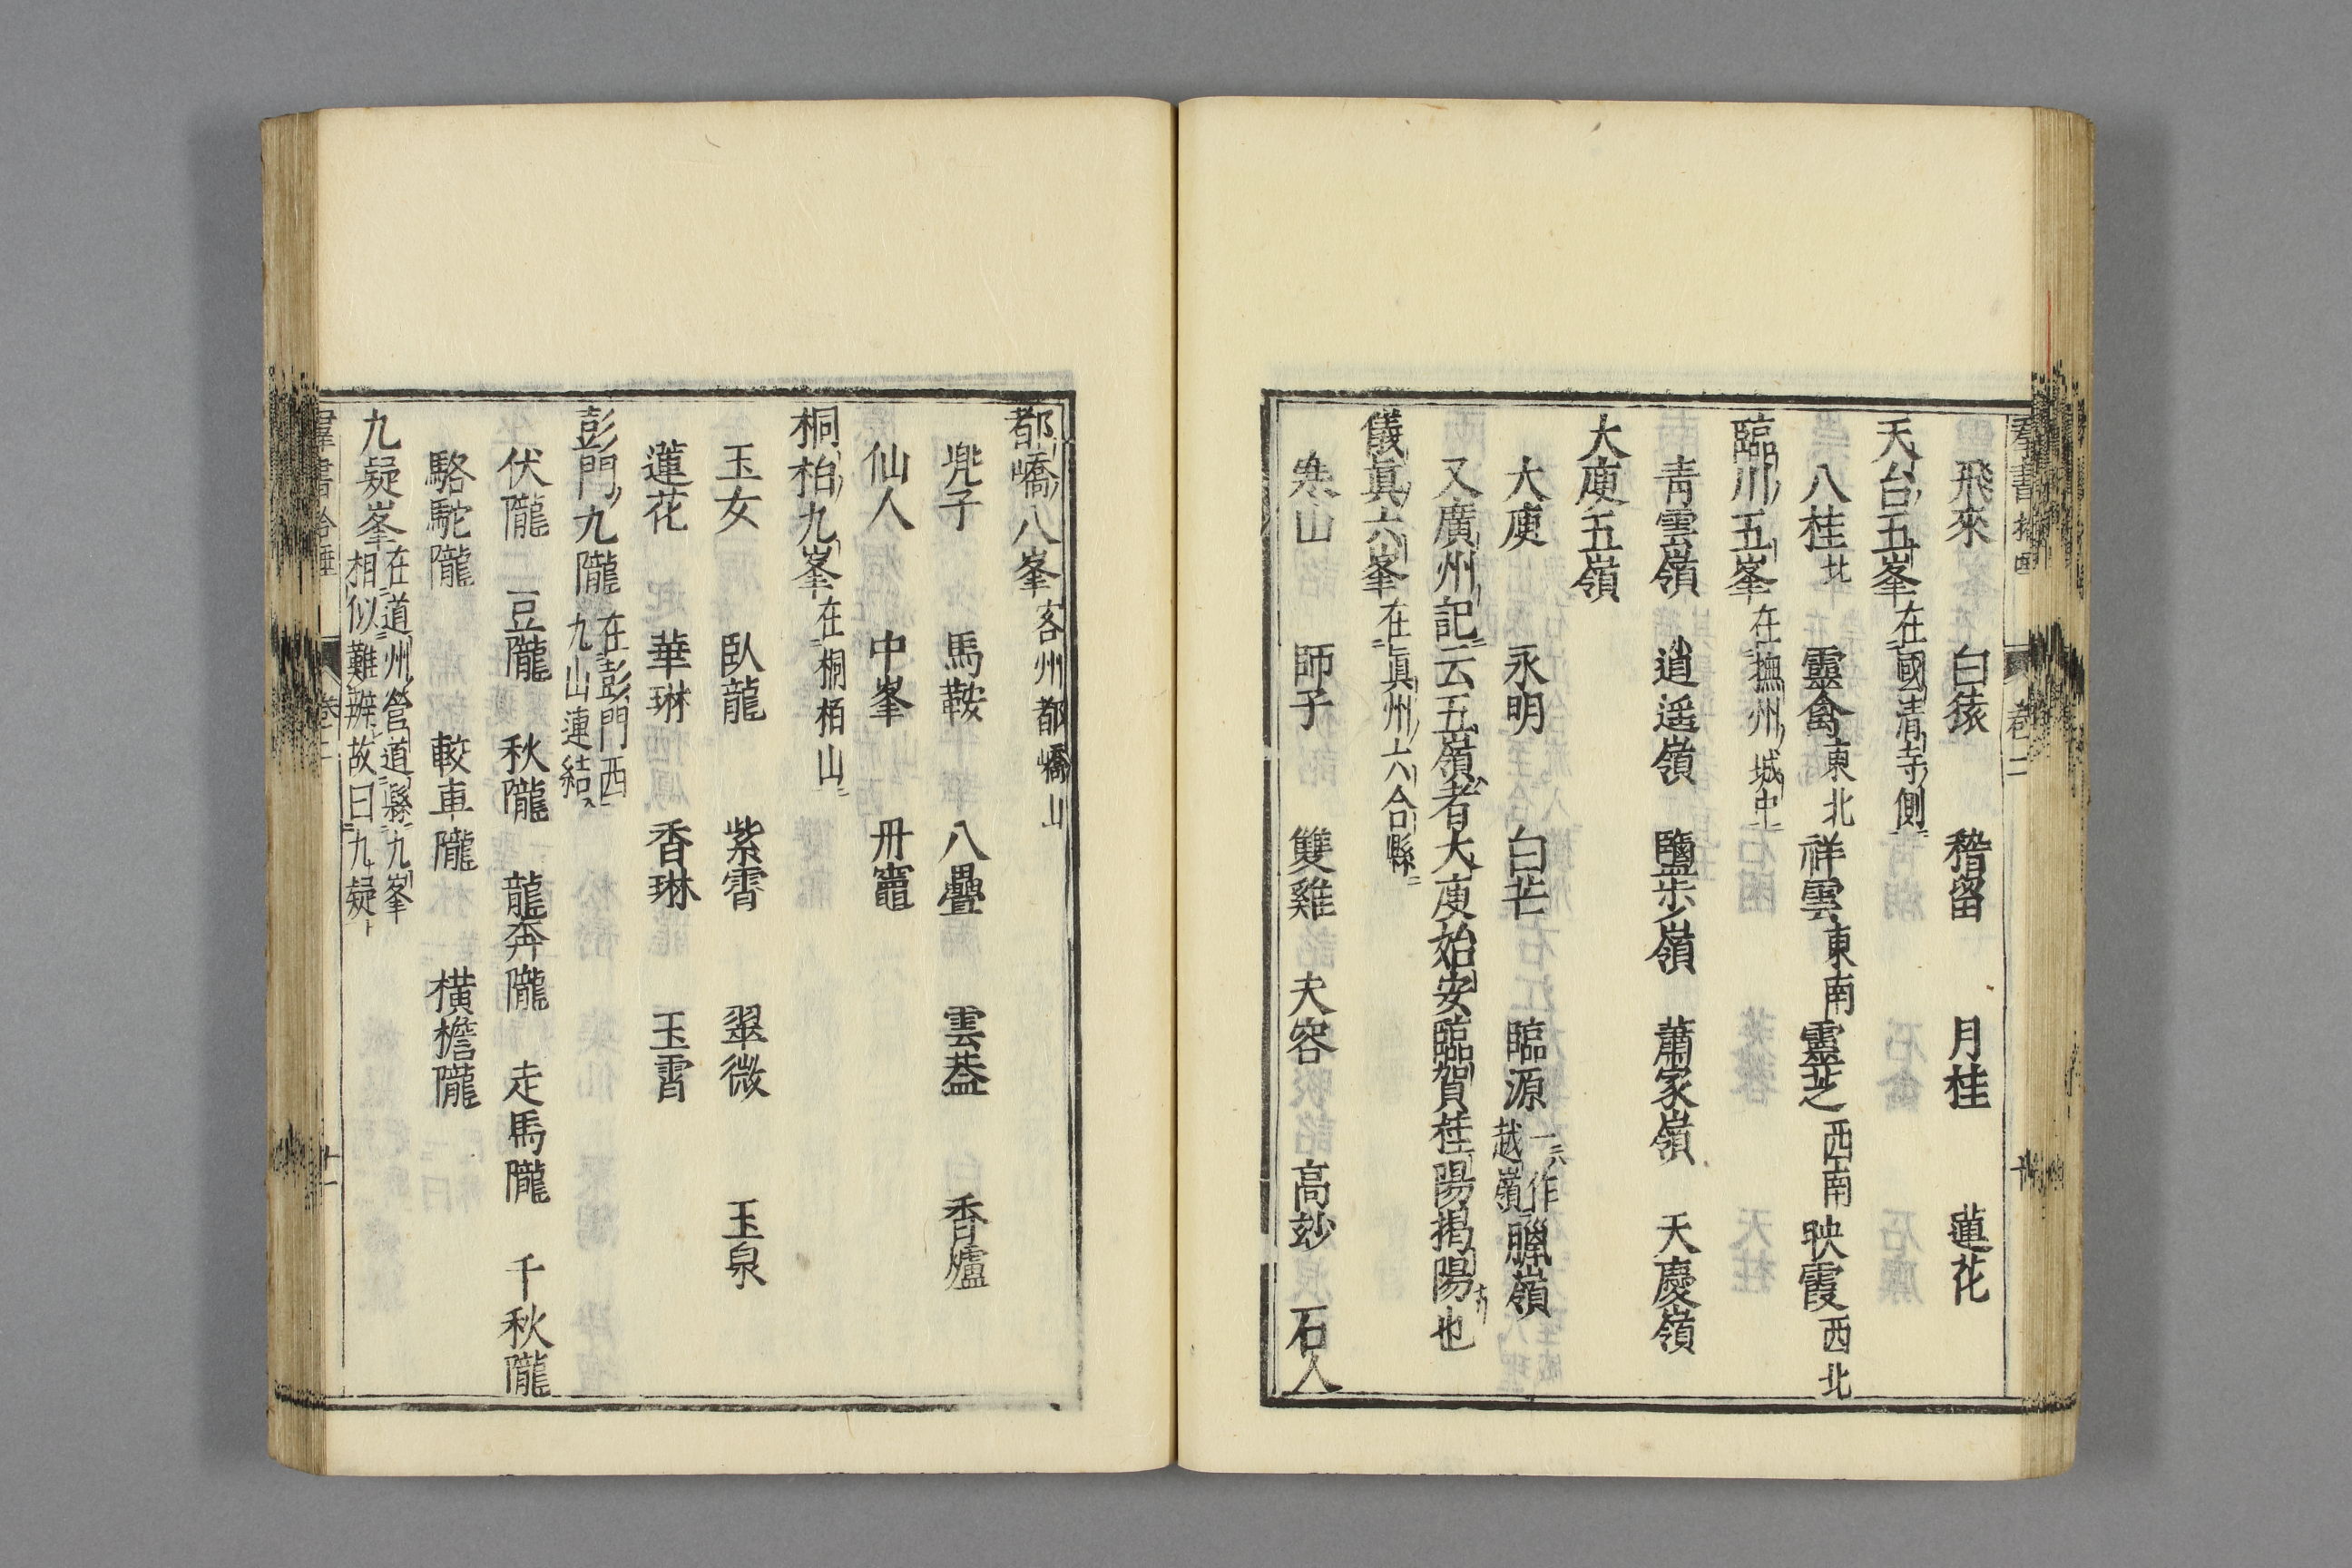 飛來　白猿　稽留　月桂　蓮花
天台五峯在國清寺側
八桂北　靈禽東北　祥雲東南　靈芝西南　映霞西北
臨川五峯在撫州城中
青雲嶺　逍遥嶺　鹽步嶺　蕭家嶺　天慶嶺
大庾五嶺
大庾　永明　白芒　臨源一云作越嶺　臈嶺
又廣州記云五嶺者大庾始安臨賀桂陽揭陽也
儀眞六峯在眞州六合縣
寒山　師子　雙雞　夫容　高妙　石人
都嶠八峯容州都嶠山
兠子　馬鞍　八疊　雲葢　香爐
仙人　中峯　丹竈
桐柏九峯在桐栢山
玉女　臥龍　紫霄　翠微　玉泉
蓮花　華琳　香琳　玉霄
彭門九隴在彭門西九山連結
伏隴　豆隴　秋隴　龍奔隴　走馬隴　千秋隴
駱駝隴　較車隴　橫檐隴
九疑峯在道州營道縣九峯相似難辨故曰九疑
羣書拾唾　卷二　十一